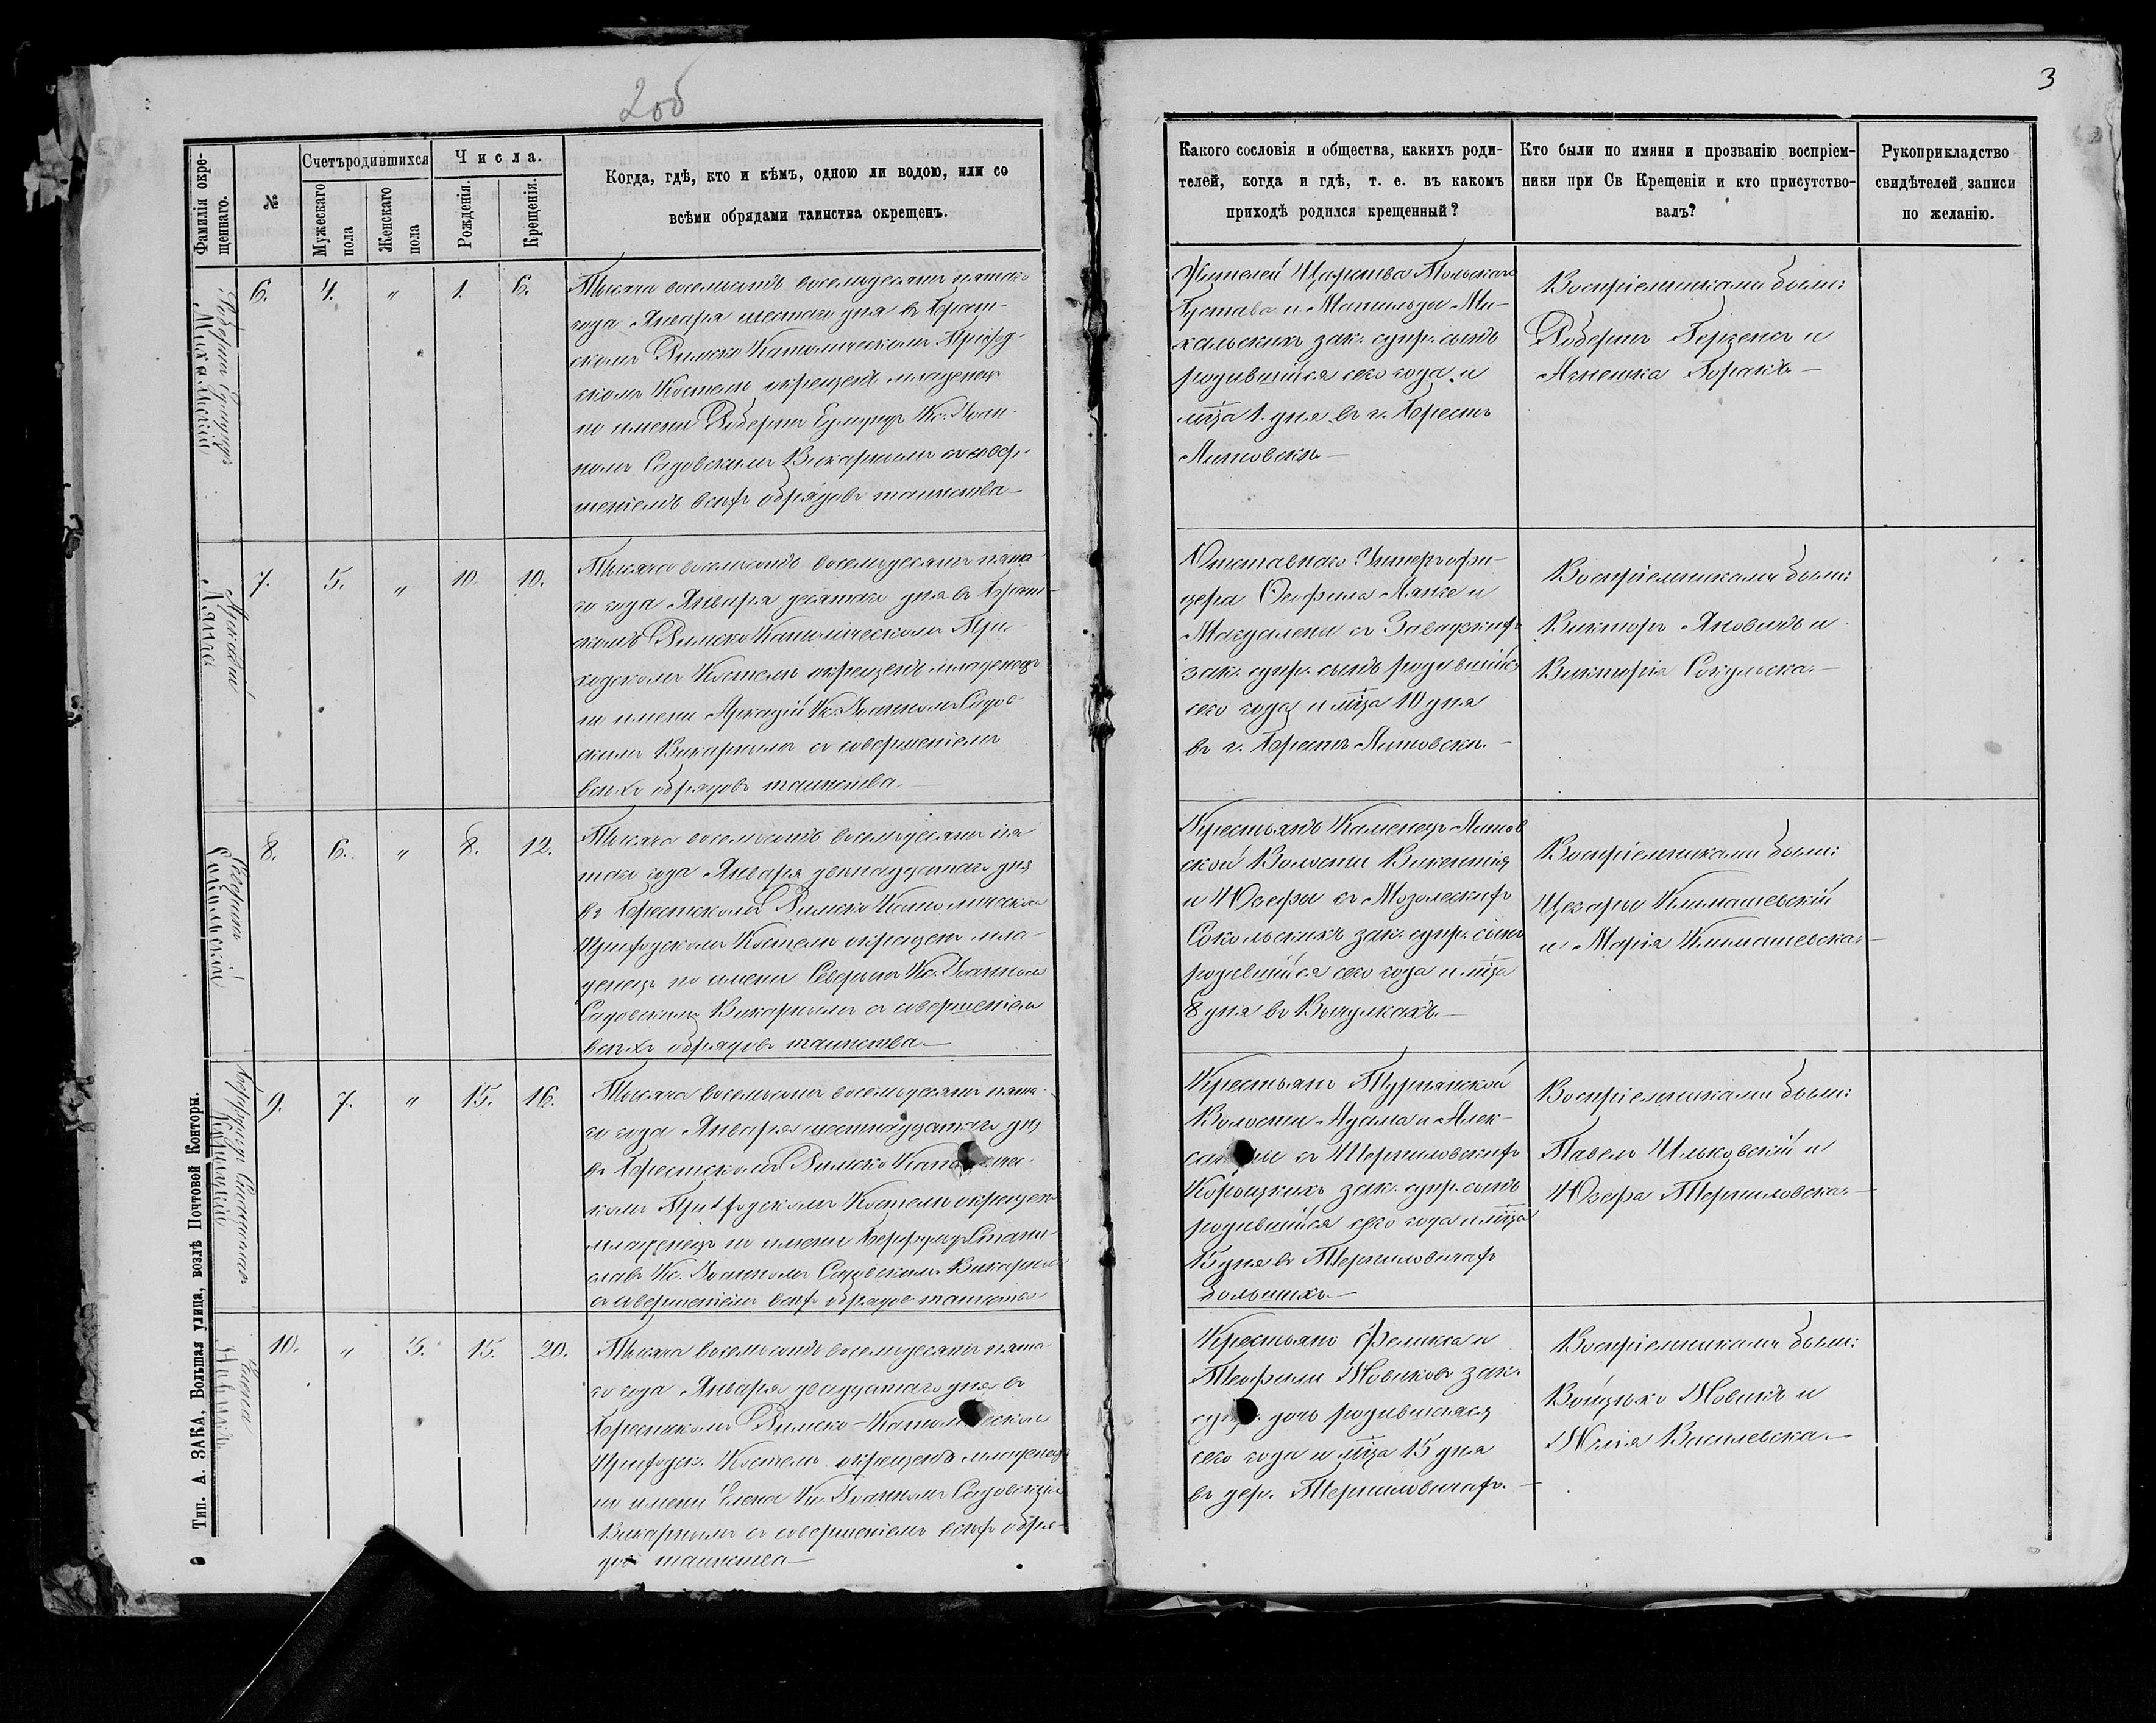 2об
3
Фамилія окрещеннаго.
№
Счетъродившихся
Мужескаго пола
Женскаго пола
Числа.
Рожденія.
Крещенія.
Когда, гдѣ, кто и кѣмъ, одною ли водою, или со
всѣми обрядами таинства окрещенъ.
Какого сословія и общества, какихъ роди-
телей, когда и гдѣ, т. е. въ какомъ
приходѣ родился крещенный?
Кто были по имяни и прозванію воспріем-
ники при Св Крещеніи и кто присутство-
валъ?
Рукоприкладство
свидѣтелей записи
по желанію.
Михальскій
6. 4. " 1. 6.
Тысяча восемьсотъ восемьдесятъ пятаго
года Января шестаго дня въ Брест-
скомъ Римско Католическомъ Приход-
скомъ Костелѣ окрещенъ младенецъ
по имени Робертъ Кс. Іоан-
номъ Садовскимъ Викаріемъ съ совер-
шеніемъ всѣхъ обрядовъ таинства
Жителей Царства Польскаго
Густава и Матильды Ми-
хальскихъ зак. супр. сынъ
родившійся сего года и
мца 1. дня въ г. Брестъ
Литовскъ
Воспріемниками были:
Робертъ и
Агнешка
Аркадій
Лянге
7. 5. " 10. 10.
Тысяча восемьсотъ восемьдесятъ пята-
го года Января десятаго дня въ Брест-
скомъ Римско Католическомъ При-
ходскомъ Костелѣ окрещенъ младенецъ
по имени Аркадій Кс. Іоанномъ Садов-
скимъ Викаріемъ съ совершеніемъ
всѣхъ обрядовъ таинства.
Отставнаго Унтеръ офи-
цера Теофила Лянге и
Магдалены съ Завадзкихъ
зак. супр. сынъ родившійся
сего года и мца 10 дня
въ г. Брестъ Литовскъ.
Воспріемниками были:
Викторъ Яновичъ и
Викторія Сокульска.
Северинъ
Сокольскій
8. 6. " 8. 12.
Тысяча восемьсотъ восемьдесятъ пя
таго года Января двенадцатаго дня
въ Брестскомъ Римско Католическомъ
Приходскомъ Костелѣ окрещенъ мла-
денецъ по имени Северинъ Кс. Іоанномъ
Садовскимъ Викаріемъ съ совершеніемъ
всѣхъ обрядовъ таинства.
Крестьянъ Каменецъ Литов
ской Волости Викентія
и Юзефы съ Мозолевскихъ
Сокольскихъ зак. супр. сынъ
родившійся сего года и мца
8 дня въ Вычулкахъ.
Воспріемниками были:
Цезарій Климашевскій
и Марія Климашевска.
Станиславъ
Корыцкій
9. 7. " 15. 16.
Тысяча восемьсотъ восемьдесятъ пята-
го года Января шестнадцатаго дня
въ Брестскомъ Римско Католичес-
комъ Приходскомъ Костелѣ окрещенъ
младенецъ по имени Стани-
славъ Кс. Іоанномъ Садовскимъ Викаріемъ
съ совершеніемъ всѣхъ обрядовъ таинства
Крестьянъ Турнянской
Волости Адама и Алек-
сандры съ Тершиловскихъ
Корыцкихъ зак. супр. сынъ
родившійся сего года и мца
15 дня въ Тершиловичахъ
Большихъ.
Воспріемниками были:
Павелъ Ильковскій и
Юзефа Тершиловска.
Елена
Новикъ
10. " 3. 15. 20.
Тысяча восемьсотъ восемьдесятъ пята-
го года Января двадцатаго дня въ
Брестскомъ Римско-Католическомъ
Приходск. Костелѣ окрещенъ младенецъ
по имени Елена Кс. Іоанномъ Садовскимъ
Викаріемъ съ совершеніемъ всѣхъ обря-
довъ таинства
Крестьянъ Феликса и
Теофили Новиковъ зак.
супр. дочь родившаяся
сего года и мца 15 дня
въ дер. Тершиловичахъ.
Воспріемниками были:
Войцѣхъ Новикъ и
Юлія Василевска.
Тип. А. ЗАКА, Большая улица, возлѣ Почтовой Конторы.